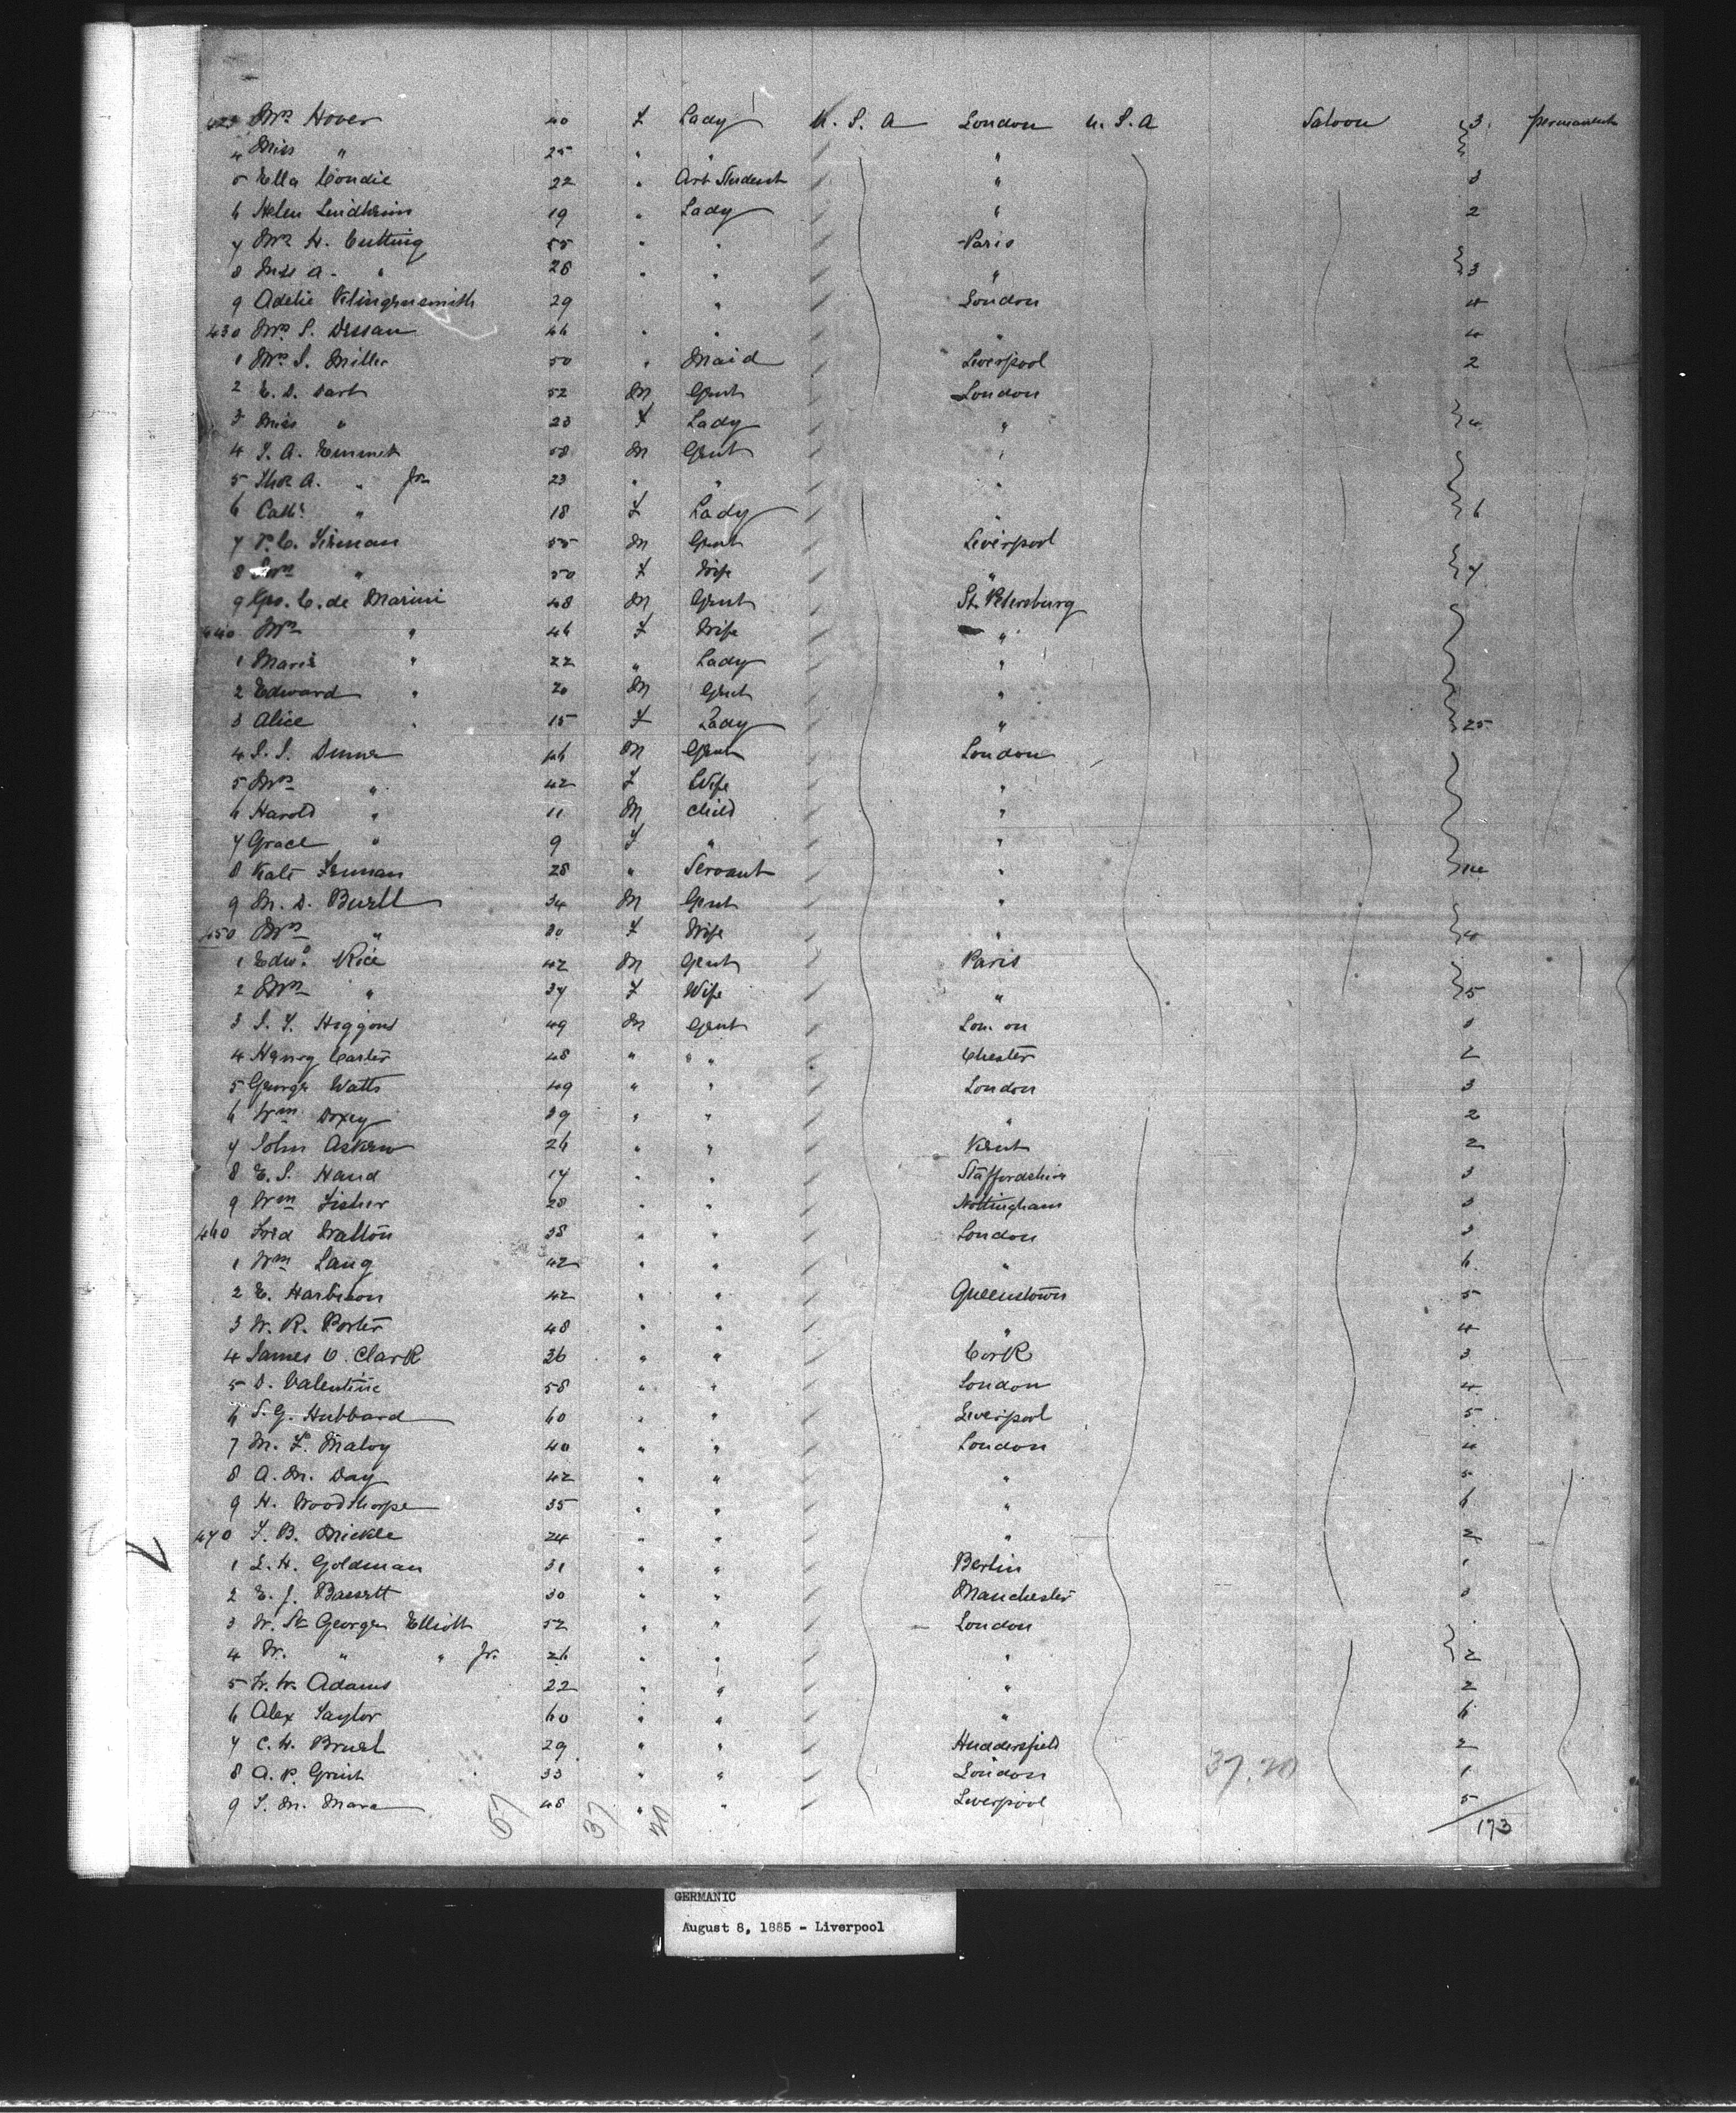 423 Mrs Hover 40 F Lady U. S. A London U. S. A Saloon 3 permanent
4 Miss " 25 " " "
5 Ella Condie 22 " Art Student " 3
6 Helen Lindheim 19 " Lady " 2
7 Mrs H. Cutting 55 " " Paris
8 Miss A. " 28 " " " 3
9 Adelie Klingensmith 29 " London 4
430 Mrs S. Dessau 46 " " " 4
1 Mrs S. Miller 50 " Maid Liverpool 2
2 E. D. Dart 52 M Gent London
3 Miss " 23 F Lady " 4
4 T. A. Emmet 58 M Gent "
5 Thos A. " Jr. 23 " " "
6 Cath: " 18 F Lady " 6
7 P. C. Firman 55 M Gent Liverpool
8 Mrs " 50 F Wife " 7
9 Geo. C. de Marini 48 M Gent St. Petersburg
440 Mrs " 46 F Wife "
1 Marie " 22 " Lady "
2 Edward " 20 M Gent "
3 Alice " 15 F Lady " 25
4 S. S. 46 M Gent London
5 Mrs " 42 F Wife "
6 Harold " 11 M Child "
7 Grace " 9 F " "
8 Kate 28 " Servant "
9 M. D. Burll 34 M Gent "
450 Mrs " 30 F Wife " 4
1 Edwd. Rice 42 M Gent Paris
2 Mrs " 37 F Wife " 5
3 S. Y. Higgons 49 M Gent Lon on 3
4 Henry Carter 48 " " " Chester 2
5 George Watts 49 " " London 3
6 Wm Doxey 39 " " " 2
7 John Askew 26 " " Kent 2
8 E. S. Hand 17 " " Staffordshire 3
9 Wm Fisher 28 " " Nottingham 3
460 Fred Walton 38 " " London 3
1 Wm Lang 42 " " " 6
2 E. Harbison 42 " " Queenstown 5
3 W. R. Porter 48 " " " 4
4 James O. Clark 36 " " Cork 3
5 D. Valentine 58 " " London 4
6 S. G. Hubbard 60 " " Liverpool 5
7 M. F. Maloy 40 " " London 4
8 A. M. Day 42 " " " 5
9 H. Woodthorpe 35 " " " 6
470 T. B. Mickle 24 " " " 2
1 L. H. Goldman 31 " " Berlin 1
2 E. J. Bassett 30 " " Manchester 3
3 W. St George Elliott 52 " " London
4 W. " " Jr. 26 " " " 2
5 W. W. Adams 22 " " " 2
6 Alex Taylor 60 " " " 6
7 C. H. Bruel 29 " " Huddersfield 2
8 A. P. Grint 33 " " London 37.20 1
9 T. M. Mara 48 " " Liverpool 5
57 37 20 173
GERMANIC
August 8, 1885 - Liverpool